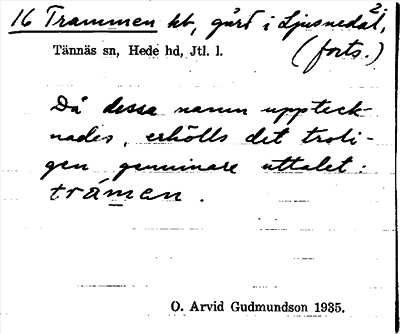 16 Trammen kt, gård i Ljusnedal,
2.
(forts.)
Tännäs sn, Hede hd, Jtl. l.
Då dessa namn uppteck-
nades, erhölls det troli-
gen genuinare uttalet:
trámen.
O. Arvid Gudmundson 1935.